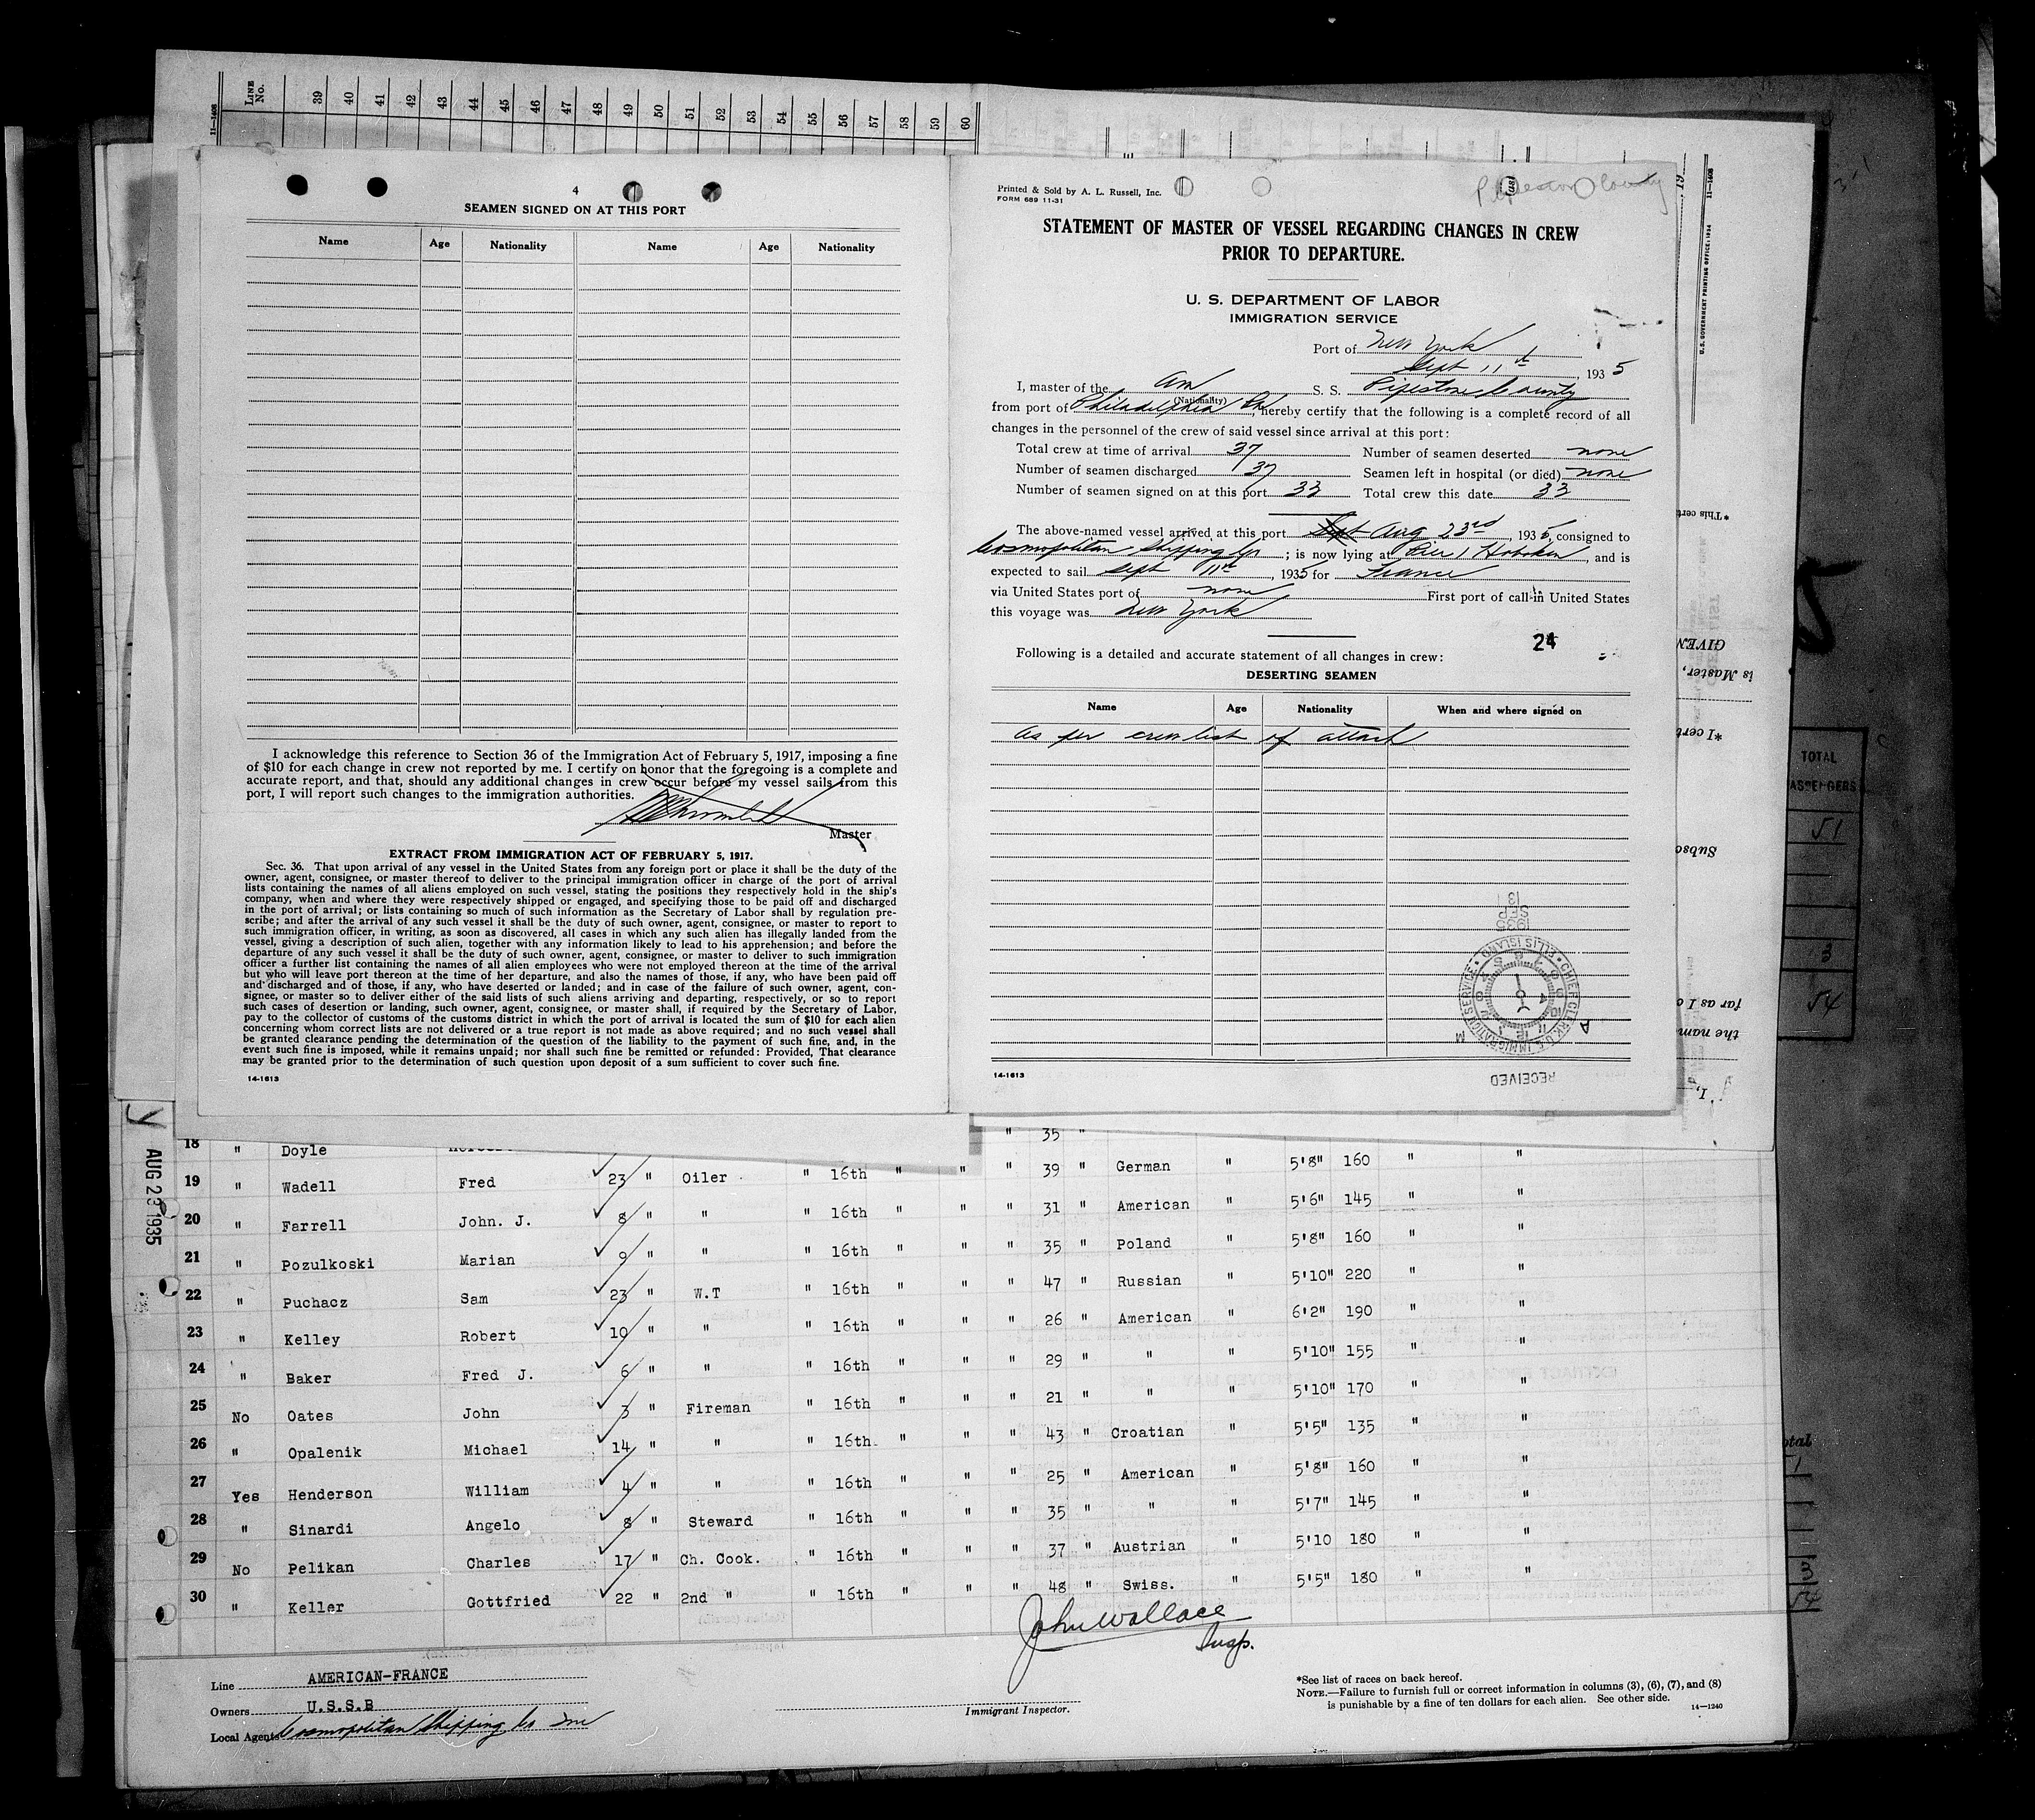 11—1408
LINE No. 39 40 41 42 43 44 45 46 47 48 49 50 51 52 53 54 55 56 57 58 59 60
4
SEAMEN SIGNED ON AT THIS PORT
Name Age Nationality Name Age Nationality
I acknowledge this reference to Section 36 of the Immigration Act of February 5, 1917, imposing a fine
of $10 for each change in crew not reported by me. I certify on honor that the foregoing is a complete and
accurate report, and that, should any additional changes in crew occur before my vessel sails from this
port, I will report such changes to the immigration authorities.
Master
EXTRACT FROM IMMIGRATION ACT OF FEBRUARY 5, 1917.
Sec. 36. That upon arrival of any vessel in the United States from any foreign port or place it shall be the duty of the
owner, agent, consignee, or master thereof to deliver to the principal immigration officer in charge of the port of arrival
lists containing the names of all aliens employed on such vessel, stating the positions they respectively hold in the ship's
company, when and where they were respectively shipped or engaged, and specifying those to be paid off and discharged
in the port of arrival; or lists containing so much of such information as the Secretary of Labor shall by regulation pre-
scribe; and after the arrival of any such vessel it shall be the duty of such owner, agent, consignee, or master to report to
such immigration officer, in writing, as soon as discovered, all cases in which any such alien has illegally landed from the
vessel, giving a description of such alien, together with any information likely to lead to his apprehension; and before the
departure of any such vessel it shall be the duty of such owner, agent, consignee, or master to deliver to such immigration
officer a further list containing the names of all alien employees who were not employed thereon at the time of the arrival
but who will leave port thereon at the time of her departure, and also the names of those, if any, who have been paid off
and discharged and of those, if any, who have deserted or landed; and in case of the failure of such owner, agent, con-
signee, or master so to deliver either of the said lists of such aliens arriving and departing, respectively, or so to report
such cases of desertion or landing, such owner, agent, consignee, or master shall, if required by the Secretary of Labor,
pay to the collector of customs of the customs district in which the port of arrival is located the sum of $10 for each alien
concerning whom correct lists are not delivered or a true report is not made as above required; and no such vessel shall
be granted clearance pending the determination of the question of the liability to the payment of such fine, and, in the
event such fine is imposed, while it remains unpaid; nor shall such fine be remitted or refunded: Provided, That clearance
may be granted prior to the determination of such question upon deposit of a sum sufficient to cover such fine.
14-1613
Printed & Sold by A. L. Russell, Inc.
FORM 689 11-31
STATEMENT OF MASTER OF VESSEL REGARDING CHANGES IN CREW
PRIOR TO DEPARTURE.
U. S. DEPARTMENT OF LABOR
IMMIGRATION SERVICE
Port of New York
Sept 11th, 1935
I, master of the Am S. S. Pipestone County
(Nationality)
from port of Philadelphia Pa, hereby certify that the following is a complete record of all
changes in the personnel of the crew of said vessel since arrival at this port:
Total crew at time of arrival 37 Number of seamen deserted none
Number of seamen discharged 37 Seamen left in hospital (or died) none
Number of seamen signed on at this port 33 Total crew this date 33
The above-named vessel arrived at this port Sept Aug 23rd, 1935, consigned to
Cosmopolitan Shipping Co; is now lying at Pier 1 Hoboken, and is
expected to sail Sept 11th, 1935 for France
via United States port of none First port of call in United States
this voyage was New York
24
Following is a detailed and accurate statement of all changes in crew:
DESERTING SEAMEN
Name Age Nationality When and where signed on
as per crew list of attach
1935 SEP 13
CHIEF CLERK, U.S. IMMIGRATION SERVICE • ELLIS ISLAND
RECEIVED
14-1613
11—1408
U.S. GOVERNMENT PRINTING OFFICE: 1934
*This certi
GIVEN
is Master,
*I cert
Subsc
far as I
the nam
I,
TOTAL
PASSENGERS
51
3
54
AUG 23 1935
18 " Doyle " 35 "
19 " Wadell Fred 23 " Oiler " 16th " " " 39 " German " 5'8" 160 " "
20 " Farrell John. J. 8 " " " 16th " " " 31 " American " 5'6" 145 " "
21 " Pozulkoski Marian 9 " " " 16th " " " 35 " Poland " 5'8" 160 " "
22 " Puchacz Sam 23 " W.T " 16th " " " 47 " Russian " 5'10" 220 " "
23 " Kelley Robert 10 " " " 16th " " " 26 " American " 6'2" 190 " "
24 " Baker Fred J. 6 " " " 16th " " " 29 " " " 5'10" 155 " "
25 No Oates John 3 " Fireman " 16th " " " 21 " " 5'10" 170 " "
26 " Opalenik Michael 14 " " " 16th " " " 43 " Croatian " 5'5" 135 " "
27 Yes Henderson William 4 " " " 16th " " " 25 " American " 5'8" 160 " "
28 " Sinardi Angelo 8 " Steward " 16th " " " 35 " " " 5'7" 145 " "
29 No Pelikan Charles 17 " Ch. Cook. " 16th " " " 37 " Austrian " 5'10 180 " "
30 " Keller Gottfried 22 " 2nd " " 16th " " " 48 " Swiss. " 5'5" 180 " "
John Wallace
Insp.
Line AMERICAN-FRANCE
Owners U.S.S.B
Local Agents Cosmopolitan Shipping Co Inc
Immigrant Inspector.
*See list of races on back hereof.
NOTE.—Failure to furnish full or correct information in columns (3), (6), (7), and (8)
is punishable by a fine of ten dollars for each alien. See other side.
14—1240